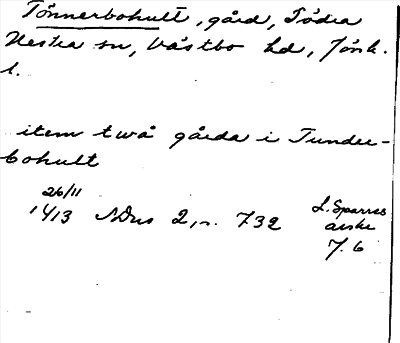 Tönnerbohult, gård, Södra
Hestra sn, Västbo hd, Jönk.
l.
item twå gårda i Tunder-
bohult
26/11
1413 NDns 2, n. 732
L. Sparres
arske
7. 6